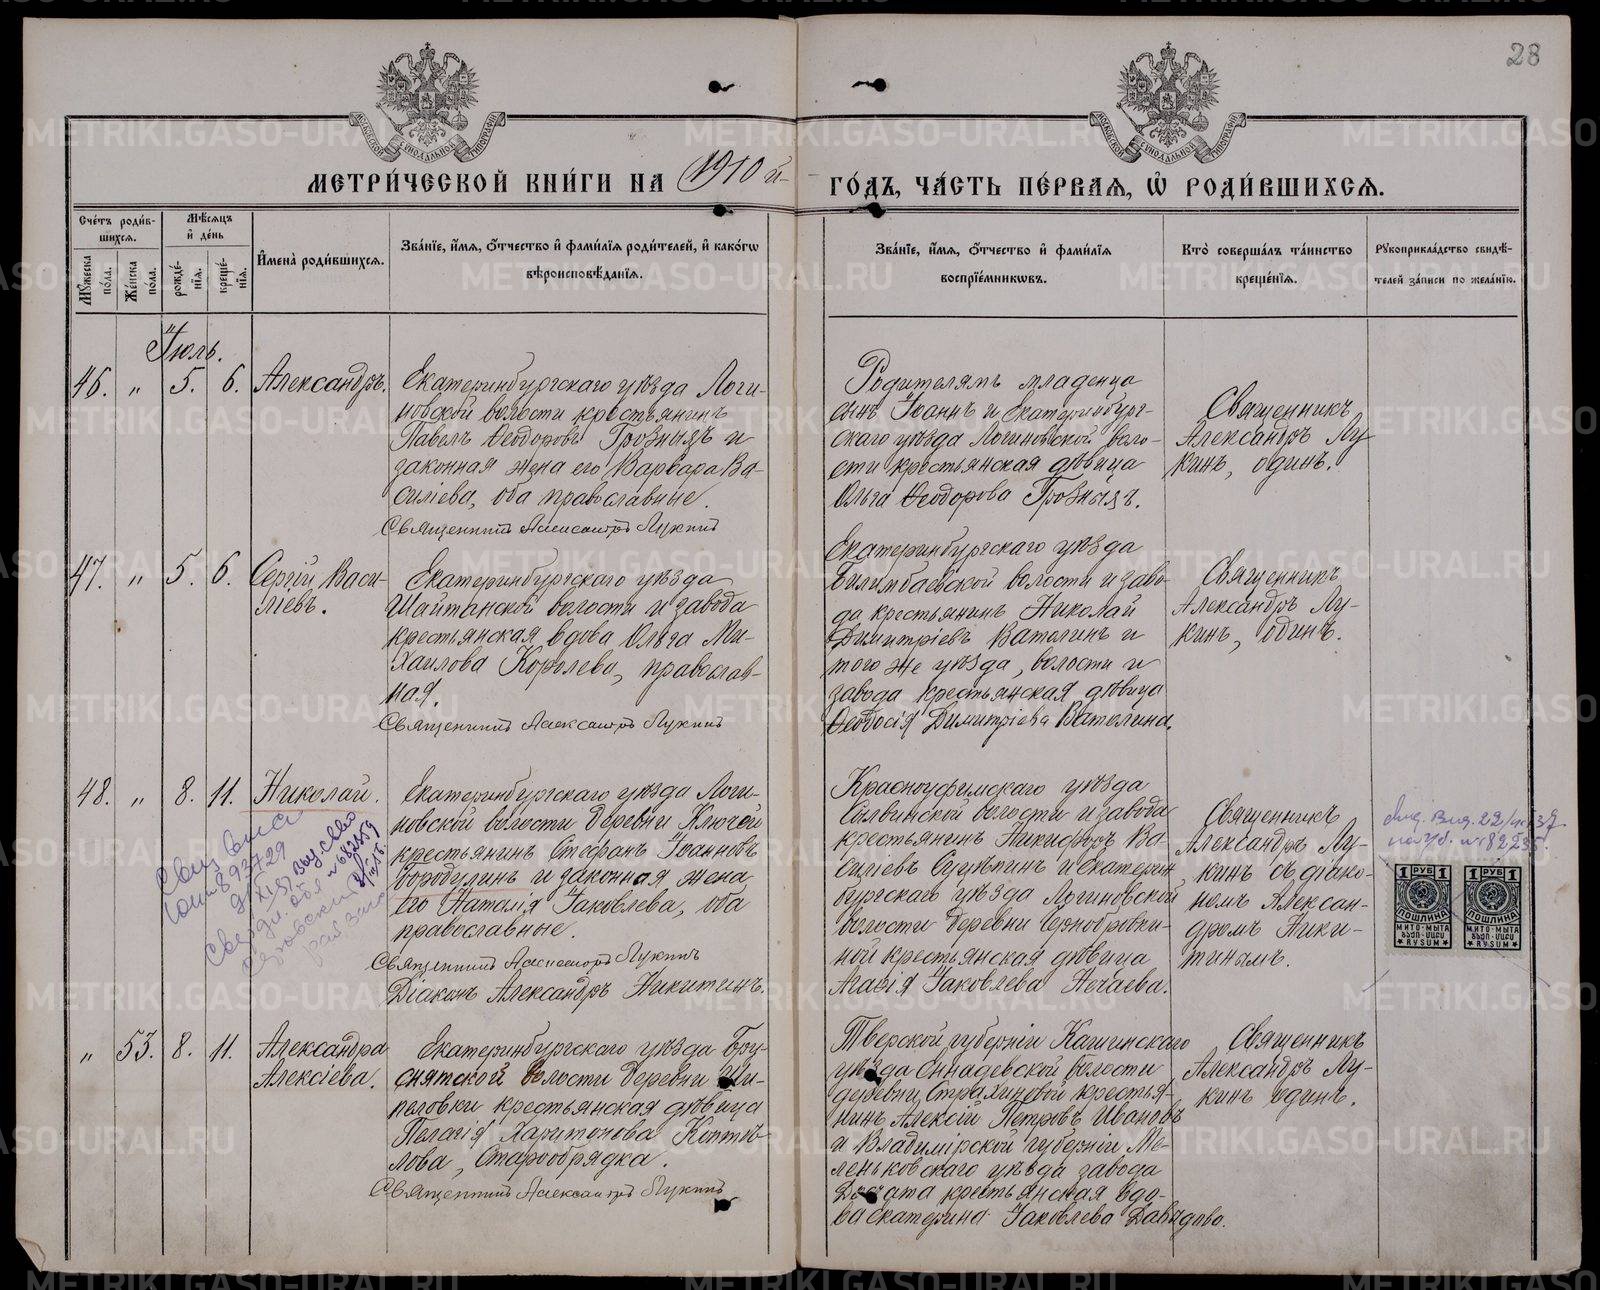 28
МЕТРИ́ЧЕСКОЙ КНИ́ГИ НА 1910 й
ГО́ДЪ, ЧА́СТЬ ПЕ́РВАѦ, Ѡ҆ РОДИ́ВШИХСѦ.
Сче́тъ роди́в-
шихсѧ.
Мѣ́сѧцъ
и҆ де́нь
Мꙋ́жеска
по́ла.
Же́нска
по́ла.
рожде́-
нїѧ.
креще́-
нїѧ.
И҆мена̀ роди́вшихсѧ.
Зва́нїе, и҆́мѧ, ѻ҆́тчество и҆ фами́лїѧ роди́телей, и҆ како́гѡ
вѣроисповѣ́данїѧ.
Зва́нїе, и҆́мѧ, ѻ҆́тчество и҆ фами́лїѧ
воспрїе́мникѡвъ.
Кто̀ соверша́лъ та́инство
креще́нїѧ.
Рꙋкоприкла́дство свидѣ́-
телей за́писи по жела́нїю.
Іюль.
46. „ 5. 6. Александръ.
Екатеринбургскаго уѣзда Логи-
новской волости крестьянинъ
Павелъ Ѳеодоровъ Грозныхъ и
законная жена его Варвара Ва-
силіева, оба православные.
Священникъ Александръ Лукинъ
Родителямъ младенца
сынъ Іоаннъ и Екатеринбург-
скаго уѣзда Логиновской воло-
сти крестьянская дѣвица
Ольга Ѳеодорова Грозныхъ.
Священникъ
Александръ Лу-
кинъ, одинъ.
47. „ 5. 6. Сергій Васи-
ліевъ.
Екатеринбургскаго уѣзда
Шайтанской волости и завода
крестьянская вдова Ольга Ми-
хаилова Королева, православ-
ная.
Священникъ Александръ Лукинъ
Екатеринбургскаго уѣзда
Билимбаевской волости и заво-
да крестьянинъ Николай
Димитріевъ Ватолинъ и
того же уѣзда, волости и
завода крестьянская дѣвица
Ѳеодосія Димитріева Ватолина.
Священникъ
Александръ Лу-
кинъ, одинъ.
48. „ 8. 11. Николай.
Екатеринбургскаго уѣзда Логи-
новской волости деревни Ключей
крестьянинъ Стефанъ Іоанновъ
Бородулинъ и законная жена
его Наталія Іаковлева, оба
православные.
Священникъ Александръ Лукинъ
Діаконъ Александръ Никитинъ.
Красноуфимскаго уѣзда
волости и завода
крестьянинъ Никифоръ Ва-
силіевъ и Екатерин
бургскаго уѣзда Логиновской
волости деревни
ной крестьянская дѣвица
Агаѳія Іаковлева Нечаева.
Священникъ
Александръ Лу-
кинъ съ діако-
номъ Алексан-
дромъ Ники-
тинымъ.
1 РУБ 1
ПОШЛИНА
МИТО-МЫТА
RYSUM
1 РУБ 1
ПОШЛИНА
МИТО-МЫТА
RYSUM
„ 53. 8. 11. Александра
Алексіева.
Екатеринбургскаго уѣзда Бру-
снятской волости деревни Ши-
пеловки крестьянская дѣвица
Пелагія Харитонова Коптѣ-
лова, Старообрядка.
Священникъ Александръ Лукинъ
Тверской губерніи Кашинскаго
уѣзда волости
деревни Страшиновой крестья-
нинъ Алексій Петровъ Ивановъ
и Владимірской губерніи Ме-
ленковскаго уѣзда завода
Досчата крестьянская вдо-
ва Екатерина Іаковлева Давыдова.
Священникъ
Александръ Лу-
кинъ одинъ.